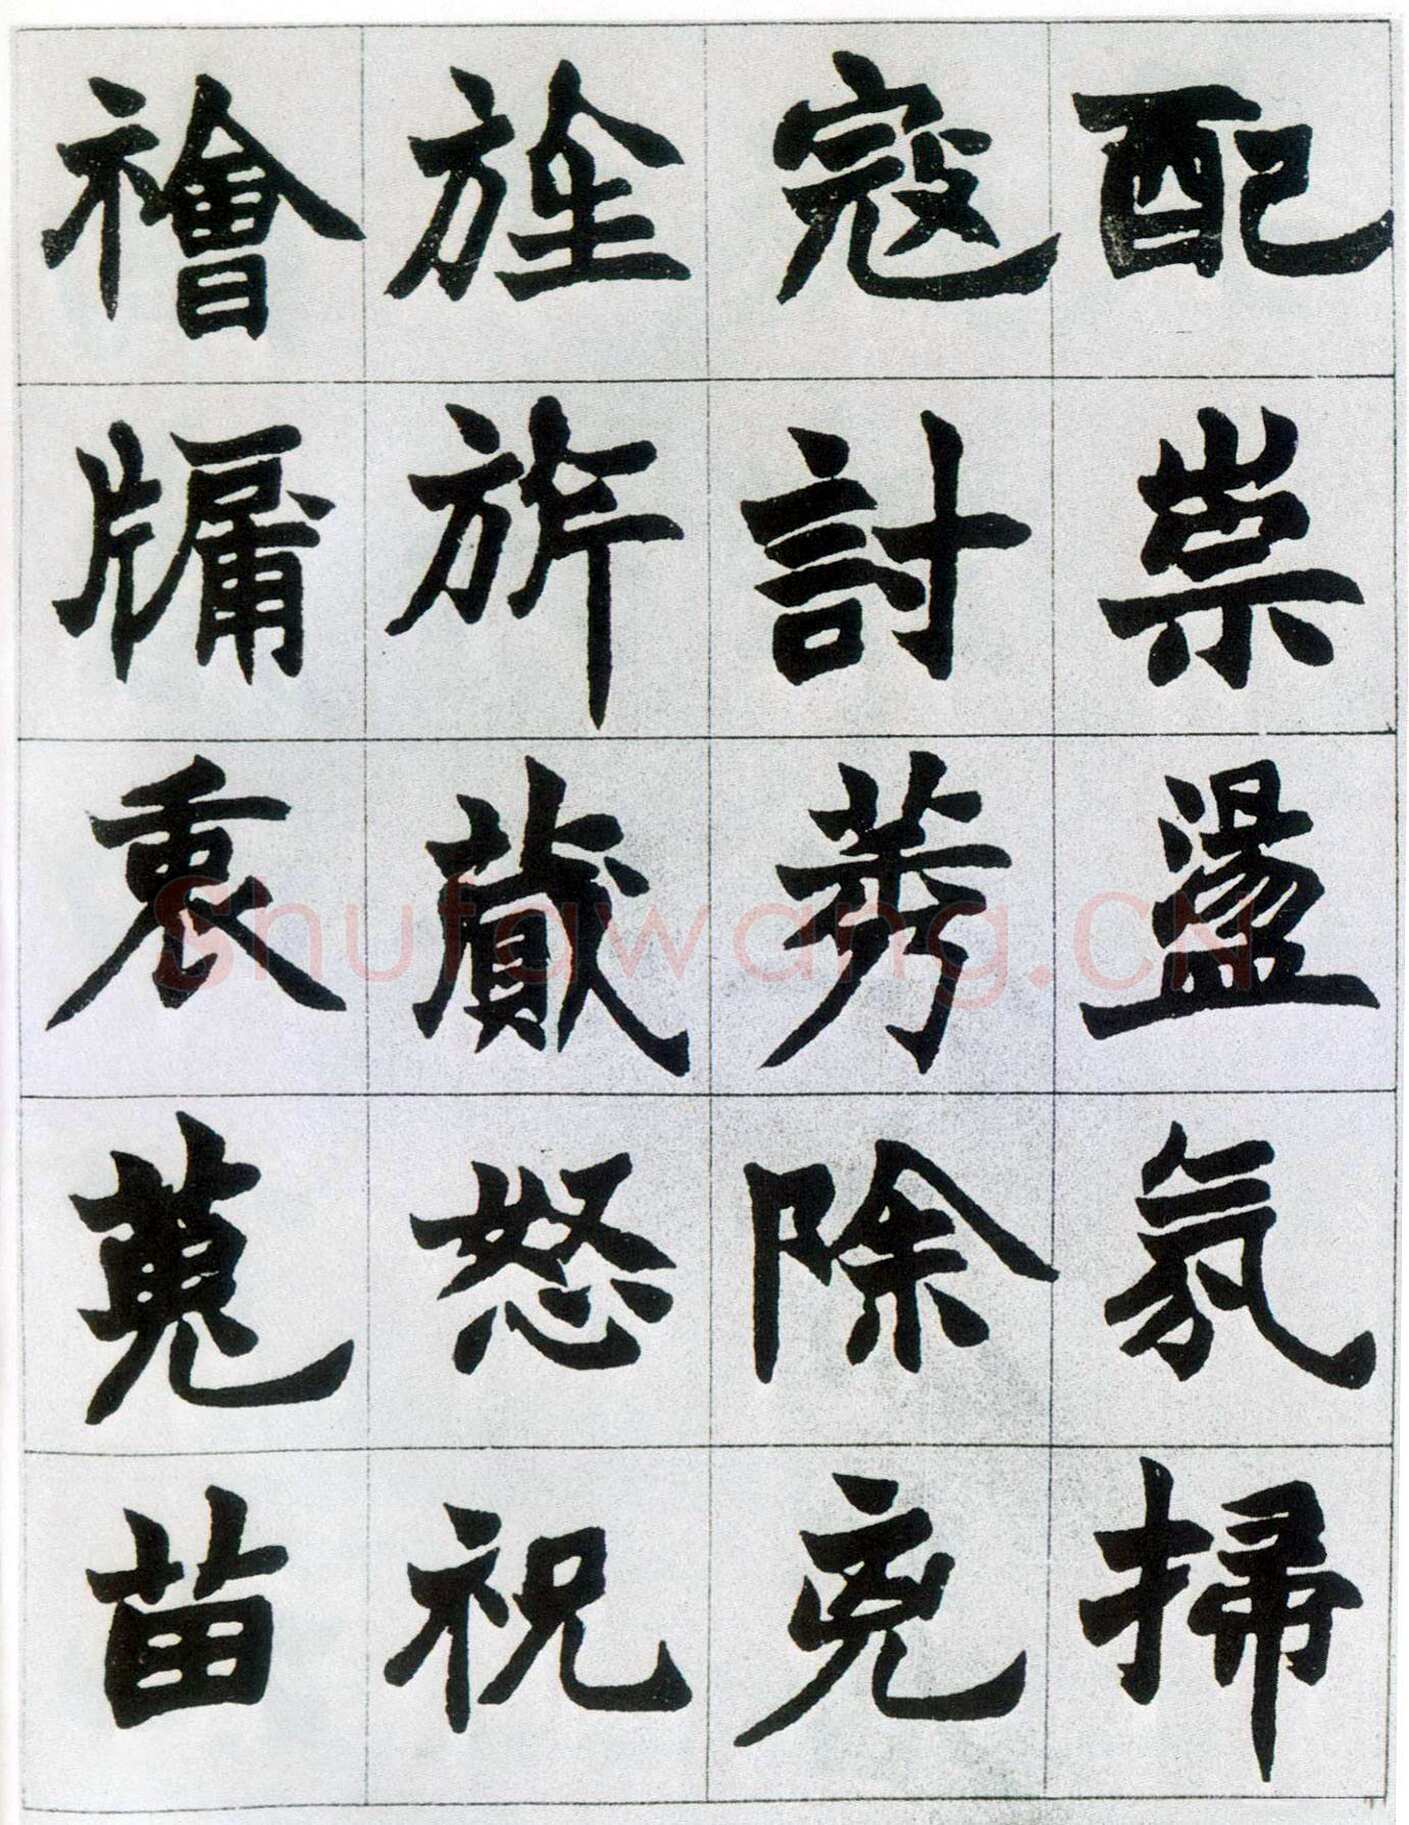 配祟盪氛掃
寇討莠除兇
旌旂蕆怒祝
禬牖衷蒐苗
Shufawang.CN